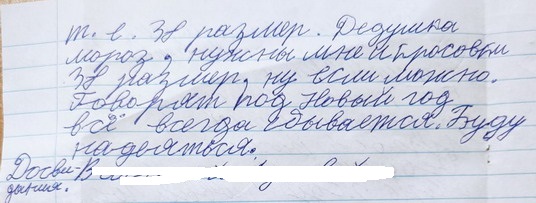 т. е. 38 размер. Дедушка
мороз, нужны мне
38 размер, ну если можно.
Говорят под Новый год
всё всегда сбывается. Буду
надеяться.
Досви-
дания.